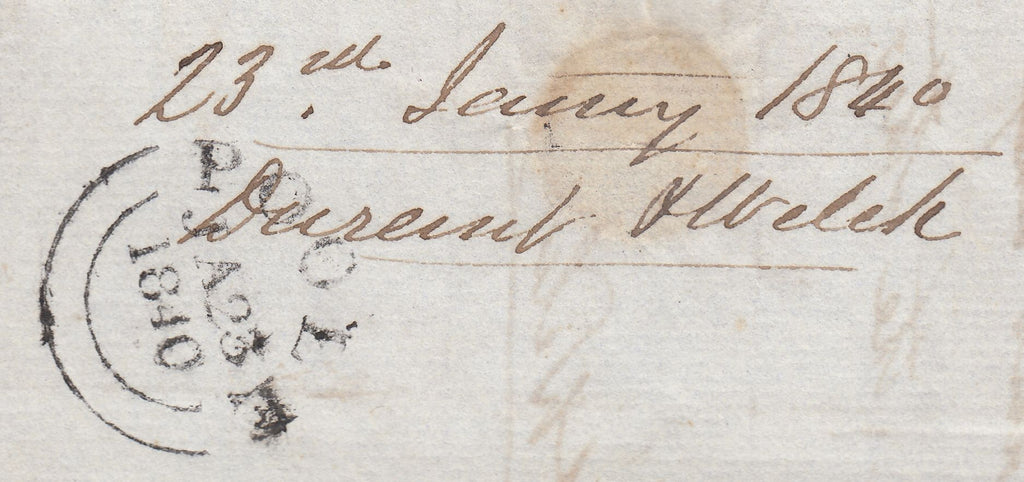 23rd. Janry 1840
Durant & Welch
POOLE
JA 23
1840